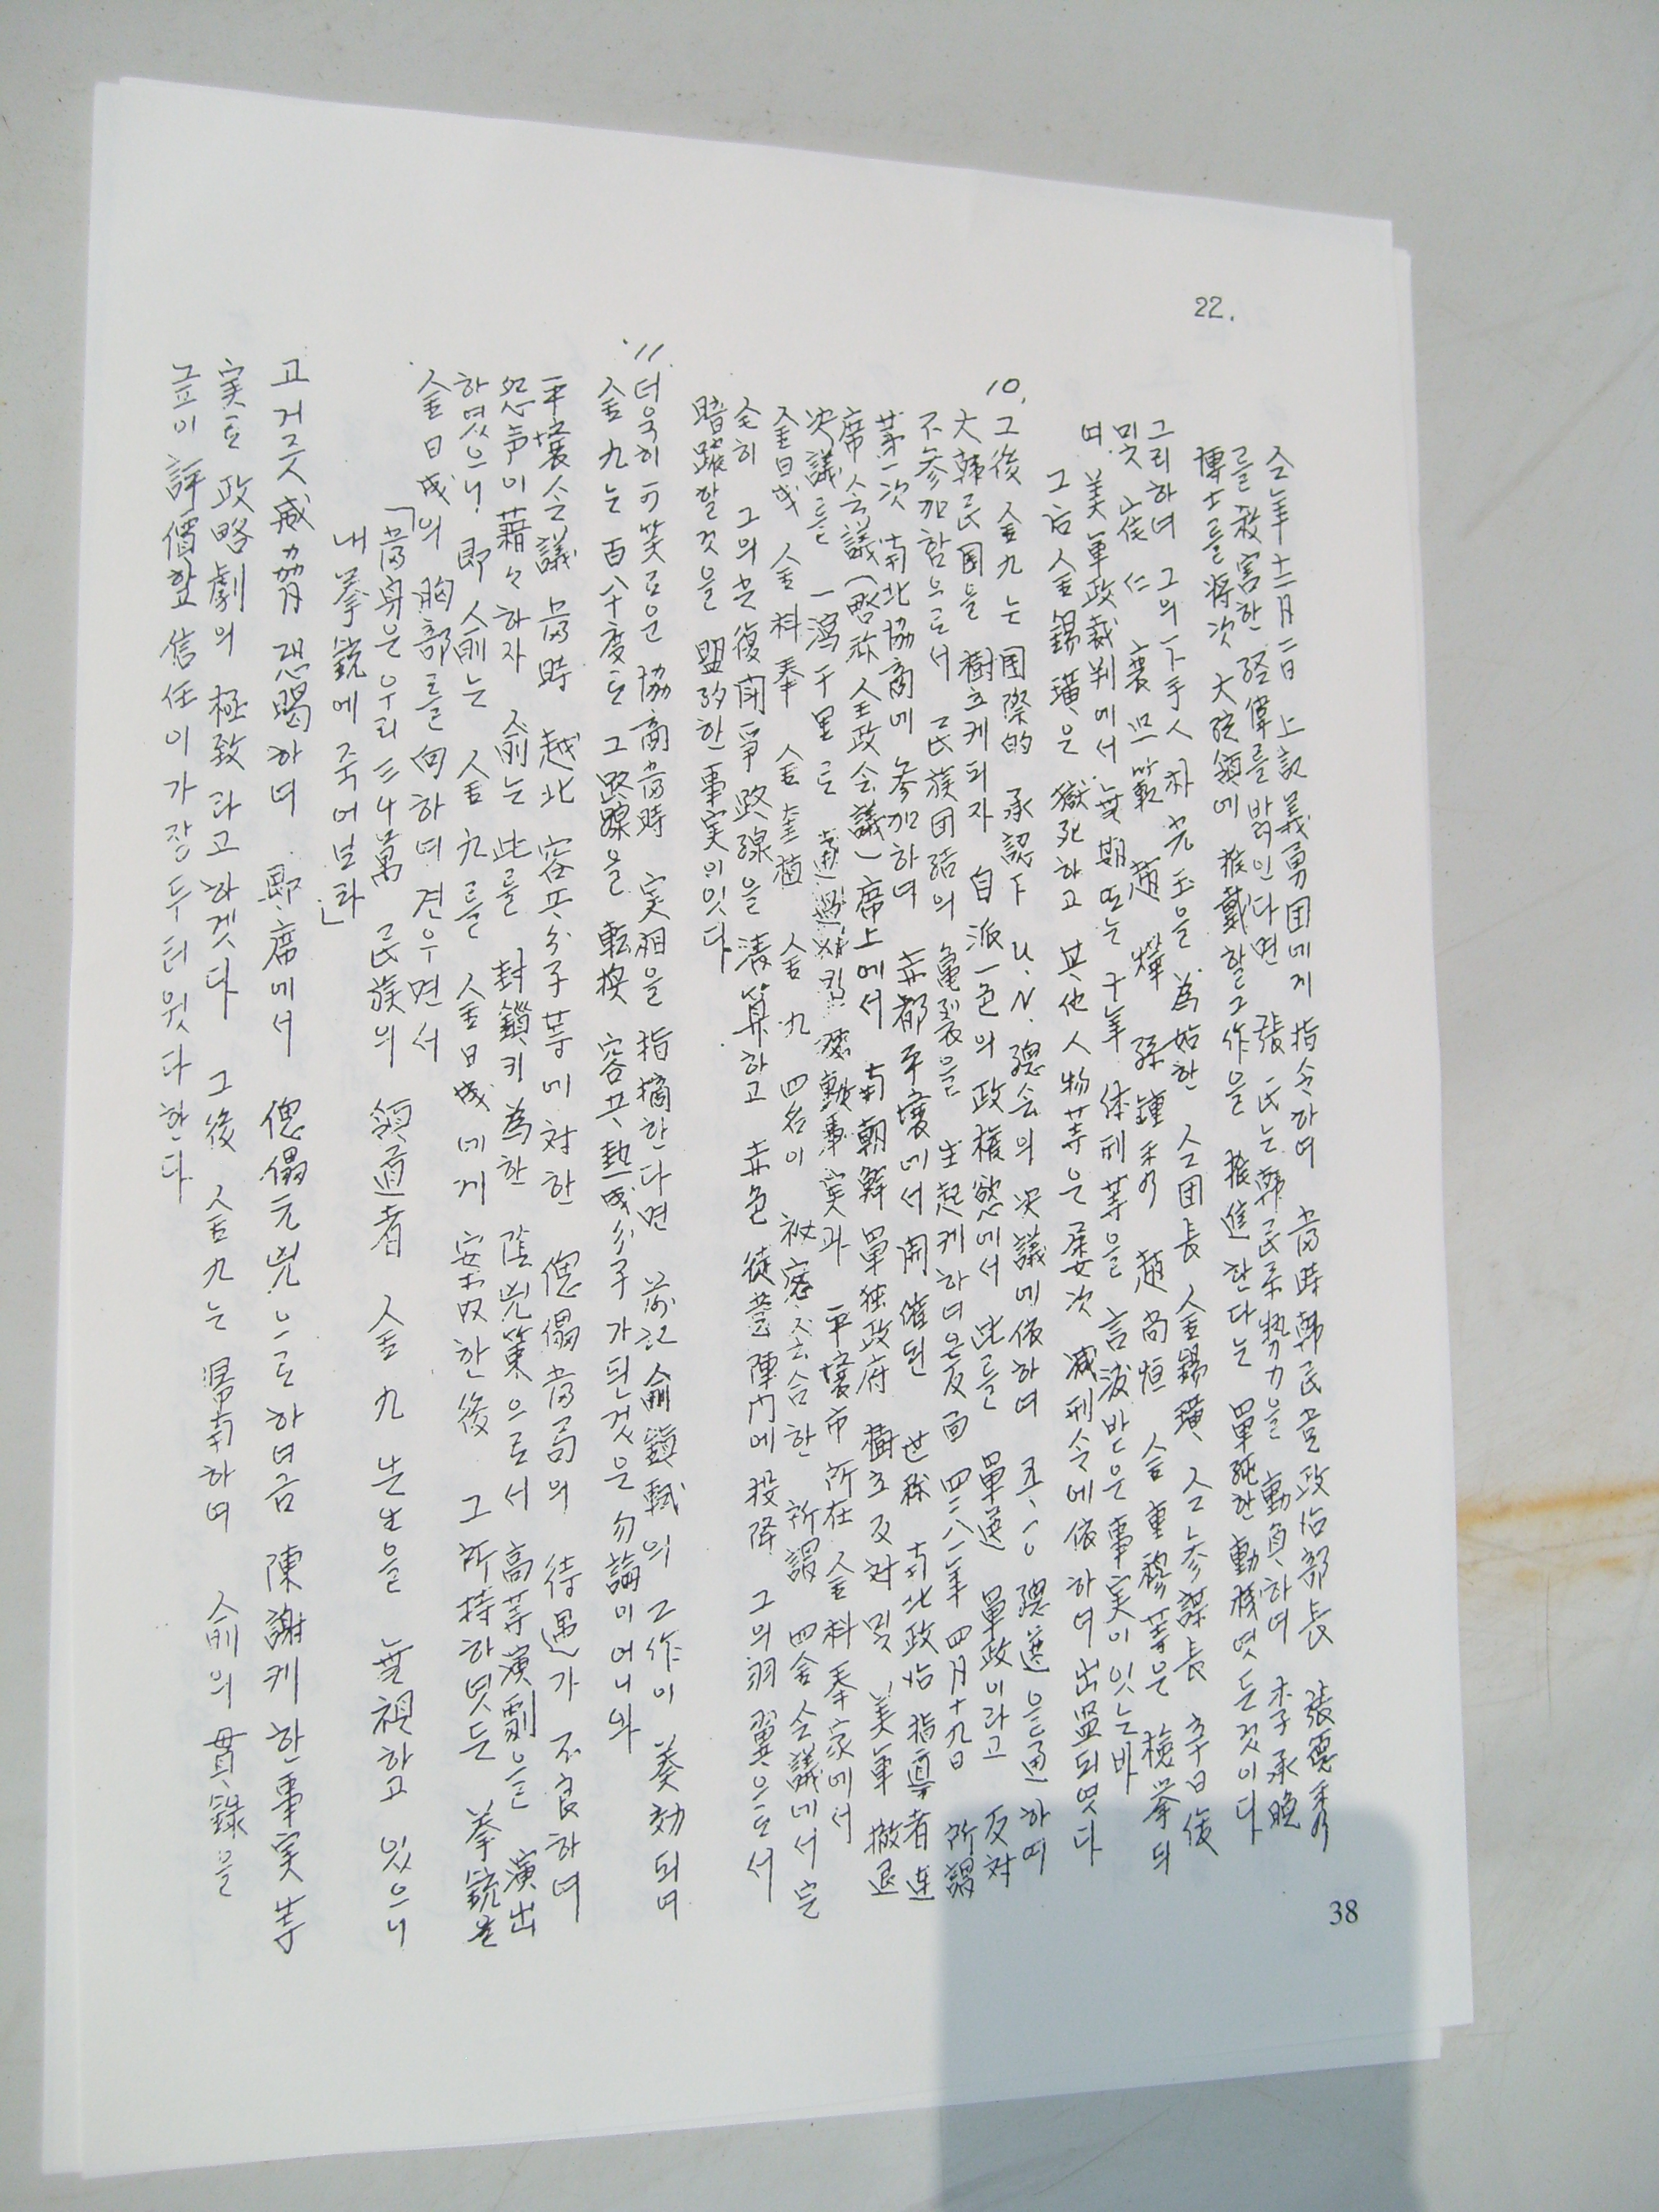 22.
仝年 十二月 二日 上記 義勇団에게 指令하며 當時 韓民党 政治部長 張德秀
를 殺害한 経偉를 밝인다면 張氏는 韓民系 勢力을 動員하며 李承晩
博士를 將次 大統領에 推戴할 工作을 推進한다는 單純한 動機였든것이다
그리하며 그의 下手人 朴光玉을 為始한 仝団長 金錫璜、仝参謀長 辛日俊
및 崔仁 裵思範 趙燁 孫鍾秀 趙尚恒 金重穆等은 檢挙되
며 美軍政裁判에서 無期 또는 十年 体刑等을 言渡받은 事実이 있는바
그后 金錫璜은 獄死하고 其他 人物等은 屡次 減刑令에 依하며 出監되였다
10. 그後 金九는 国際的 承認下 U.N.總会의 決議에 依하며 五、一○ 總選을 通하며
大韓民国을 樹立케되자 自派一色의 政権慾에서 此를 單選 單政이라고 反対
不参加함으로서 民族団結의 龜裂을 生起케하며온 反面 四二八一年 四月十九日 所謂
第一次 南北協商에 参加하며 赤都 平壤에서 開催된 世称 南北政治指導者連
席会議(略称 全政会議)席上에서 南朝鮮 單独政府 樹立反対 및 美軍 撤退
決議를 一瀉千里로 通過시킨 事実과 平壤市 所在 金科奉家에서
金日成 金科奉 金奎植 金九 四名이 会合한 所謂 四金会議에서 完
全히 그의 光復闘爭 政線을 淸算하고 赤色 徒党 陣門에 投降 그의 羽翼으로서
暗躍할것을 盟約한 事実이있다
11 더욱히 可笑로운 協商當時 実相을 指摘한다면 前記 兪鎭軾의 工作이 奏効되며
金九는 百八十度로 그 路線을 転換 容共 熱成分子가 된것은 勿論이어니와
平壤会議 當時 越北 容共分子等에 対한 傀儡當局의 待遇가 不良하며
怨声이 藉々하자 兪는 此를 封鎖키 為한 陰兇策으로서 高等演劇을 演出
하였으니 即 兪는 金九를 金日成에게 安内한後 그 所持하였든 拳銃을
金日成의 胸部를 向하며 견우면서
「當身은 우리 三千萬 民族의 領道者 金九 先生을 無視하고 있으니
내 拳銃에 죽어보라」
고 거즛 威脅 恐喝하며 即席에서 傀儡元兇으로하여금 陳謝케한 事実等
実로 政略劇의 極致라고 하겠다 그後 金九는 歸南하며 兪의 貫錄을
높이 評價할 信任이 가장 두터웠다 한다
38